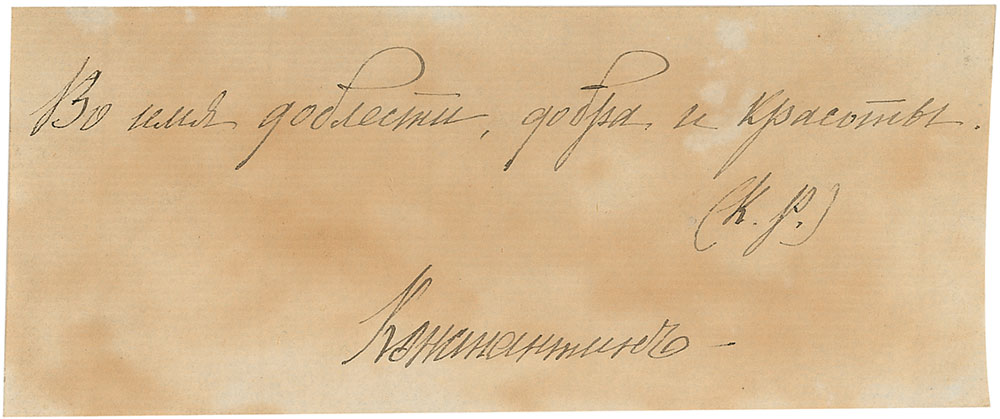 Во имя доблести, добра и красоты.
(К. Р.)
Константинъ